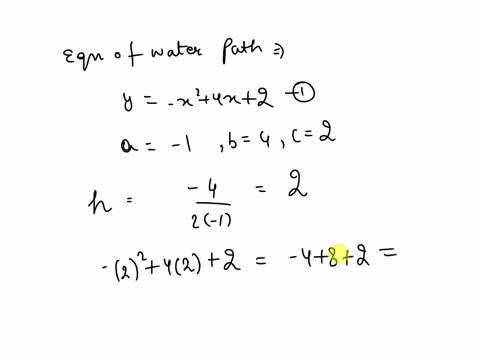 Eqn of water Path ⇒
y = -x²+4x+2 –①
a = -1 , b=4 , c=2
h = -4/2(-1) = 2
-(2)²+4(2)+2 = -4+8+2 =